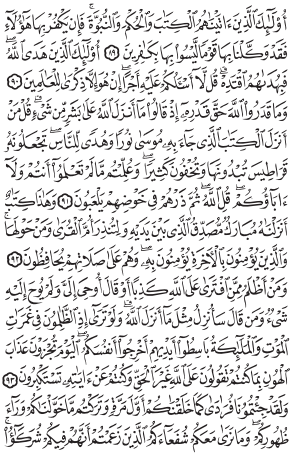 أُوْلَٰٓئِكَ ٱلَّذِينَ ءَاتَيْنَٰهُمُ ٱلْكِتَٰبَ وَٱلْحُكْمَ وَٱلنُّبُوَّةَۚ فَإِن يَكْفُرْ بِهَا هَٰٓؤُلَآءِ
فَقَدْ وَكَّلْنَا بِهَا قَوْمًا لَّيْسُوا۟ بِهَا بِكَٰفِرِينَ ٨٩ أُوْلَٰٓئِكَ ٱلَّذِينَ هَدَى ٱللَّهُۖ
فَبِهُدَىٰهُمُ ٱقْتَدِهْۗ قُل لَّآ أَسْـَٔلُكُمْ عَلَيْهِ أَجْرًاۖ إِنْ هُوَ إِلَّا ذِكْرَىٰ لِلْعَٰلَمِينَ ٩٠
وَمَا قَدَرُوا۟ ٱللَّهَ حَقَّ قَدْرِهِۦٓ إِذْ قَالُوا۟ مَآ أَنزَلَ ٱللَّهُ عَلَىٰ بَشَرٍ مِّن شَىْءٍۗ قُلْ مَنْ
أَنزَلَ ٱلْكِتَٰبَ ٱلَّذِى جَآءَ بِهِۦ مُوسَىٰ نُورًا وَهُدًى لِّلنَّاسِۖ تَجْعَلُونَهُۥ
قَرَاطِيسَ تُبْدُونَهَا وَتُخْفُونَ كَثِيرًاۖ وَعُلِّمْتُم مَّا لَمْ تَعْلَمُوٓا۟ أَنتُمْ وَلَآ
ءَابَآؤُكُمْۖ قُلِ ٱللَّهُۖ ثُمَّ ذَرْهُمْ فِى خَوْضِهِمْ يَلْعَبُونَ ٩١ وَهَٰذَا كِتَٰبٌ
أَنزَلْنَٰهُ مُبَارَكٌ مُّصَدِّقُ ٱلَّذِى بَيْنَ يَدَيْهِ وَلِتُنذِرَ أُمَّ ٱلْقُرَىٰ وَمَنْ حَوْلَهَاۚ
وَٱلَّذِينَ يُؤْمِنُونَ بِٱلْءَاخِرَةِ يُؤْمِنُونَ بِهِۦۖ وَهُمْ عَلَىٰ صَلَاتِهِمْ يُحَافِظُونَ ٩٢
وَمَنْ أَظْلَمُ مِمَّنِ ٱفْتَرَىٰ عَلَى ٱللَّهِ كَذِبًا أَوْ قَالَ أُوحِىَ إِلَىَّ وَلَمْ يُوحَ إِلَيْهِ
شَىْءٌ وَمَن قَالَ سَأُنزِلُ مِثْلَ مَآ أَنزَلَ ٱللَّهُۗ وَلَوْ تَرَىٰٓ إِذِ ٱلظَّٰلِمُونَ فِى غَمَرَٰتِ
ٱلْمَوْتِ وَٱلْمَلَٰٓئِكَةُ بَاسِطُوٓا۟ أَيْدِيهِمْ أَخْرِجُوٓا۟ أَنفُسَكُمُۖ ٱلْيَوْمَ تُجْزَوْنَ عَذَابَ
ٱلْهُونِ بِمَا كُنتُمْ تَقُولُونَ عَلَى ٱللَّهِ غَيْرَ ٱلْحَقِّ وَكُنتُمْ عَنْ ءَايَٰتِهِۦ تَسْتَكْبِرُونَ ٩٣
وَلَقَدْ جِئْتُمُونَا فُرَٰدَىٰ كَمَا خَلَقْنَٰكُمْ أَوَّلَ مَرَّةٍ وَتَرَكْتُم مَّا خَوَّلْنَٰكُمْ وَرَآءَ
ظُهُورِكُمْۖ وَمَا نَرَىٰ مَعَكُمْ شُفَعَآءَكُمُ ٱلَّذِينَ زَعَمْتُمْ أَنَّهُمْ فِيكُمْ شُرَكَٰٓؤُا۟ۚ